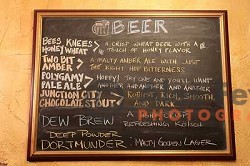 BEER
BEES KNEES HONEY WHEAT → A CRISP WHEAT BEER WITH A TOUCH OF HONEY FLAVOR
TWO BIT AMBER → A MALTY AMBER ALE WITH JUST THE RIGHT HOP BITTERNESS
POLYGAMY PALE ALE → HOPPY! TRY ONE AND YOU'LL WANT ANOTHER AND ANOTHER AND ANOTHER
JUNCTION CITY CHOCOLATE STOUT → ROBUST, RICH, SMOOTH, AND DARK
DEW BREW A REFRESHING KÖLSCH
DEEP POWDER
DORTMUNDER MALTY GOLDEN LAGER
PHOTOGR